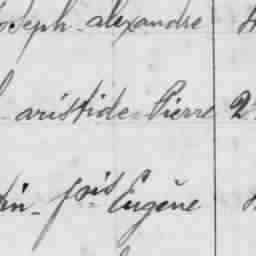 oseph alexandre
aristide Pierre 2
in fois Eugène